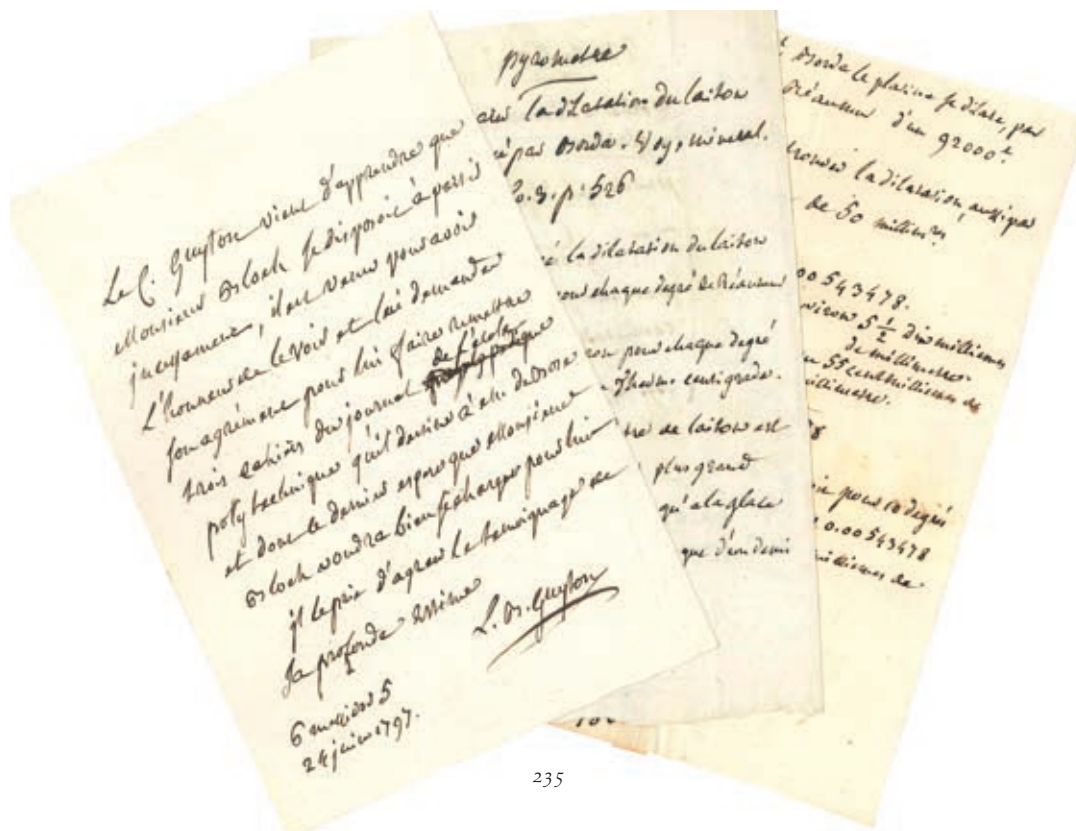 Le C. Guyton vient d'apprendre que
Monsieur Bloch se disposoit à partir
incessament, il est venu pour avoir
L'honneur de le voir et lui demander
son agrément pour lui faire remettre
trois cahiers du journal de l'école
polytechnique qu'il destine à
et dont le dernier espere que Monsieur
Bloch voudra bien se charger pour lui
il le prie d'agreer le temoignage de
sa profonde estime
L. B. Guyton
6 messidor 5
24 juin 1797.
pyrometre
la dilatation du laiton
é par Borda. Voy. mineral.
o. 3. p. 526
é la dilatation du laiton
pour chaque degré de Réaumur
pour chaque degré
Therm. centigrade.
tre de laiton est
plus grand
qu'a la glace
que d'un demi
Borda le platine se dilate, par
Réaumur d'un 92000.e
trouver la dilatation, aussi par
de 50 millim.
00543478.
viron 5 1/2 dix milliemes
de millimetre
55 cent milliemes de
millimetre.
pour 10 degrés
0.00543478
milliemes de
235